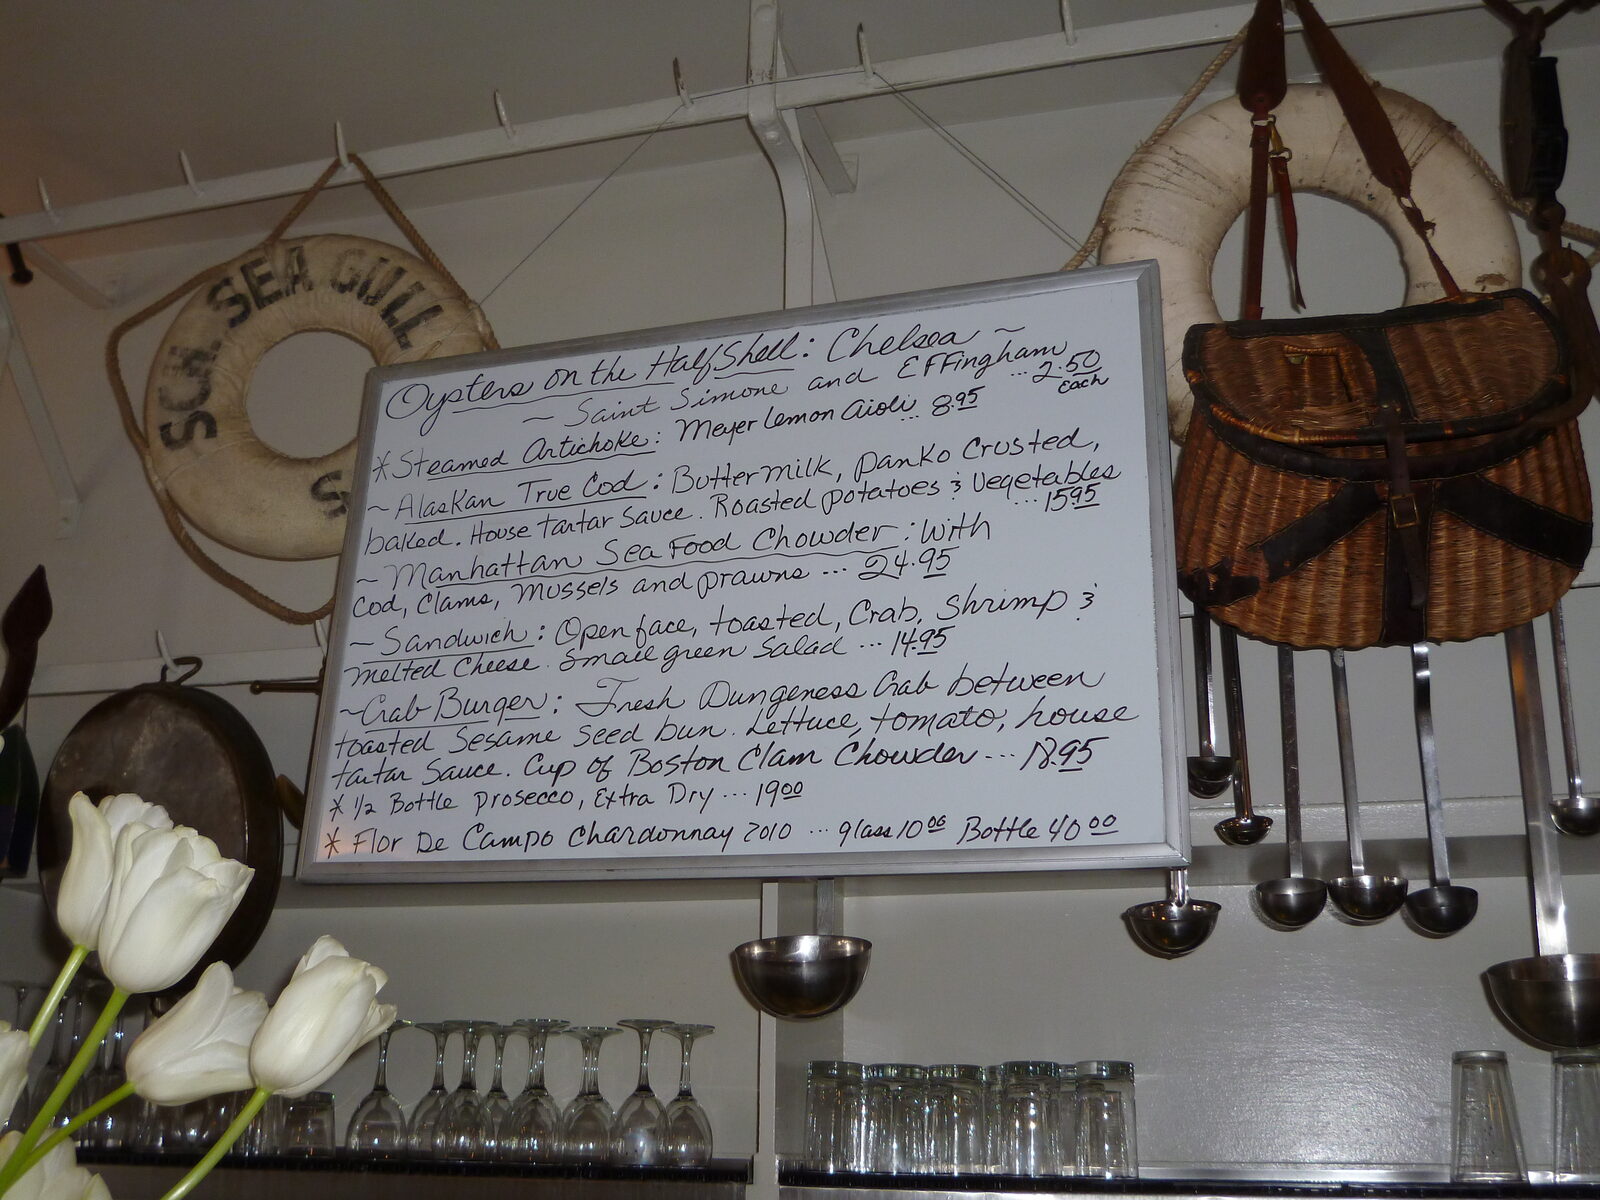 SCH. SEA GULL
S
Oysters on the Half Shell: Chelsea ~
~ Saint Simone and Effingham
... 2.50
Each
* Steamed Artichoke: Meyer Lemon Aioli... 8.95
~ Alaskan True Cod: Buttermilk, panko Crusted,
baked. House tartar Sauce. Roasted potatoes & Vegetables
... 15.95
~ Manhattan Sea Food Chowder: With
Cod, Clams, Mussels and prawns ... 24.95
~ Sandwich: Open face, toasted, Crab, Shrimp &
melted Cheese. Small green Salad ... 14.95
~ Crab Burger: Fresh Dungeness Crab between
toasted Sesame Seed bun. Lettuce, tomato, house
tartar Sauce. Cup of Boston Clam Chowder ... 18.95
* 1/2 Bottle Prosecco, Extra Dry ... 19.00
* Flor De Campo Chardonnay 2010 ... glass 10.00 Bottle 40.00